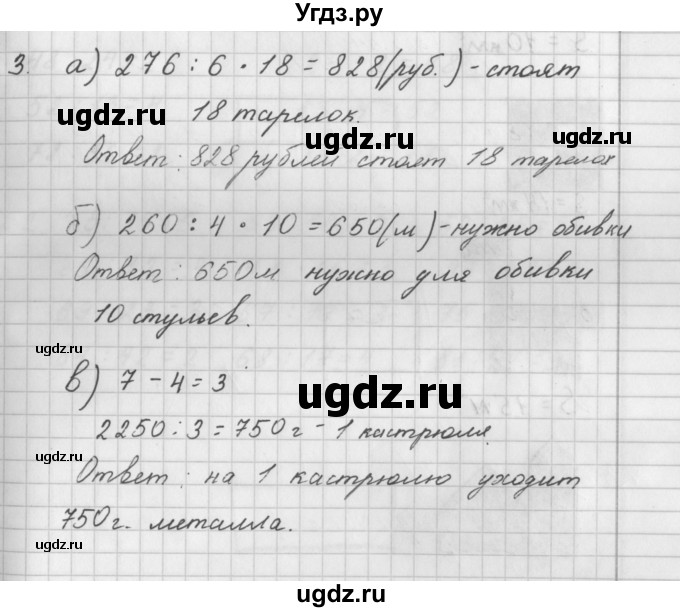 Угдз.ру
3. а) 276 : 6 · 18 = 828(руб.) - стоят
18 тарелок.
ugdz.ru
ugdz.ru
Ответ: 828 рублей стоят 18 тарелок
ugdz.ru
б) 260 : 4 · 10 = 650(м) - нужно обивки
Ответ: 650м нужно для обивки
10 стульев.
ugdz.ru
ugdz.ru
в) 7 - 4 = 3
ugdz.ru
2250 : 3 = 750 г - 1 кастрюля.
ugdz.ru
Ответ: на 1 кастрюлю уходит
750г. металла.
ugdz.ru
ugdz.ru
ugdz.ru